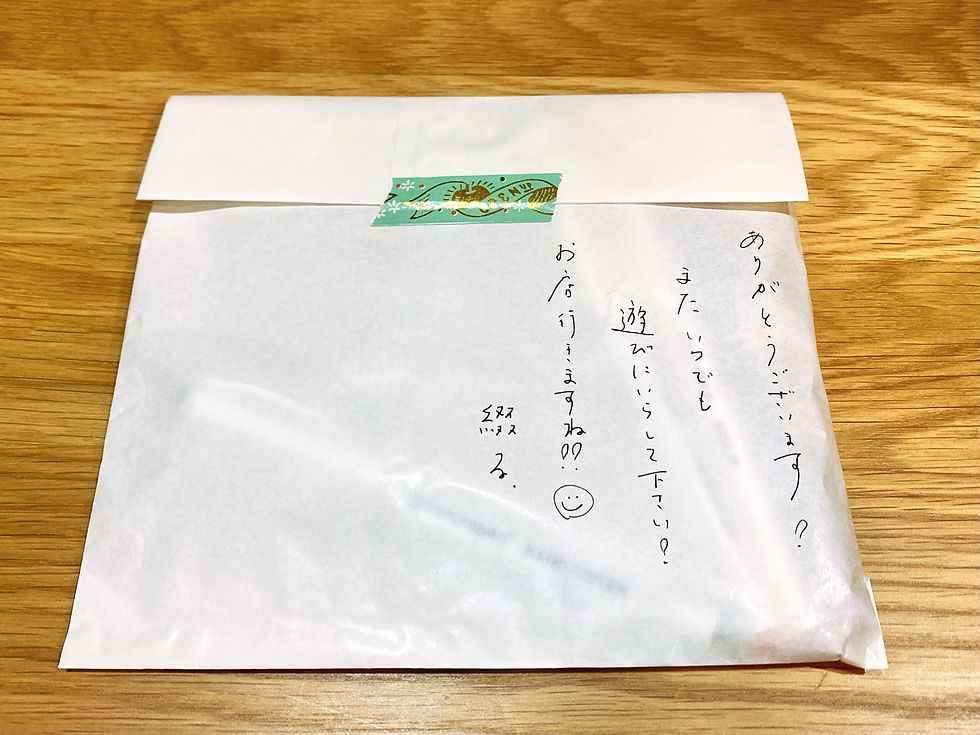 ありがとうございます！
またいつでも
遊びにいらして下さい！
お店行きますね！！
綴る.